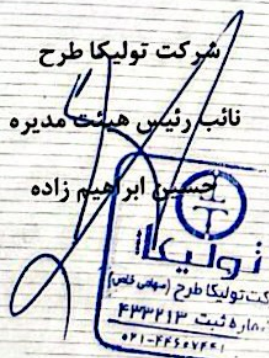 شرکت تولیکا طرح
نائب رئیس هیئت مدیره
حسین ابراهیم زاده
تولیکا
کت تولیکا طرح (سهامی خاص)
ماره ثبت ۴۳۳۲۱۳
۰۲۱-۴۴۶۰۷۴۴۱